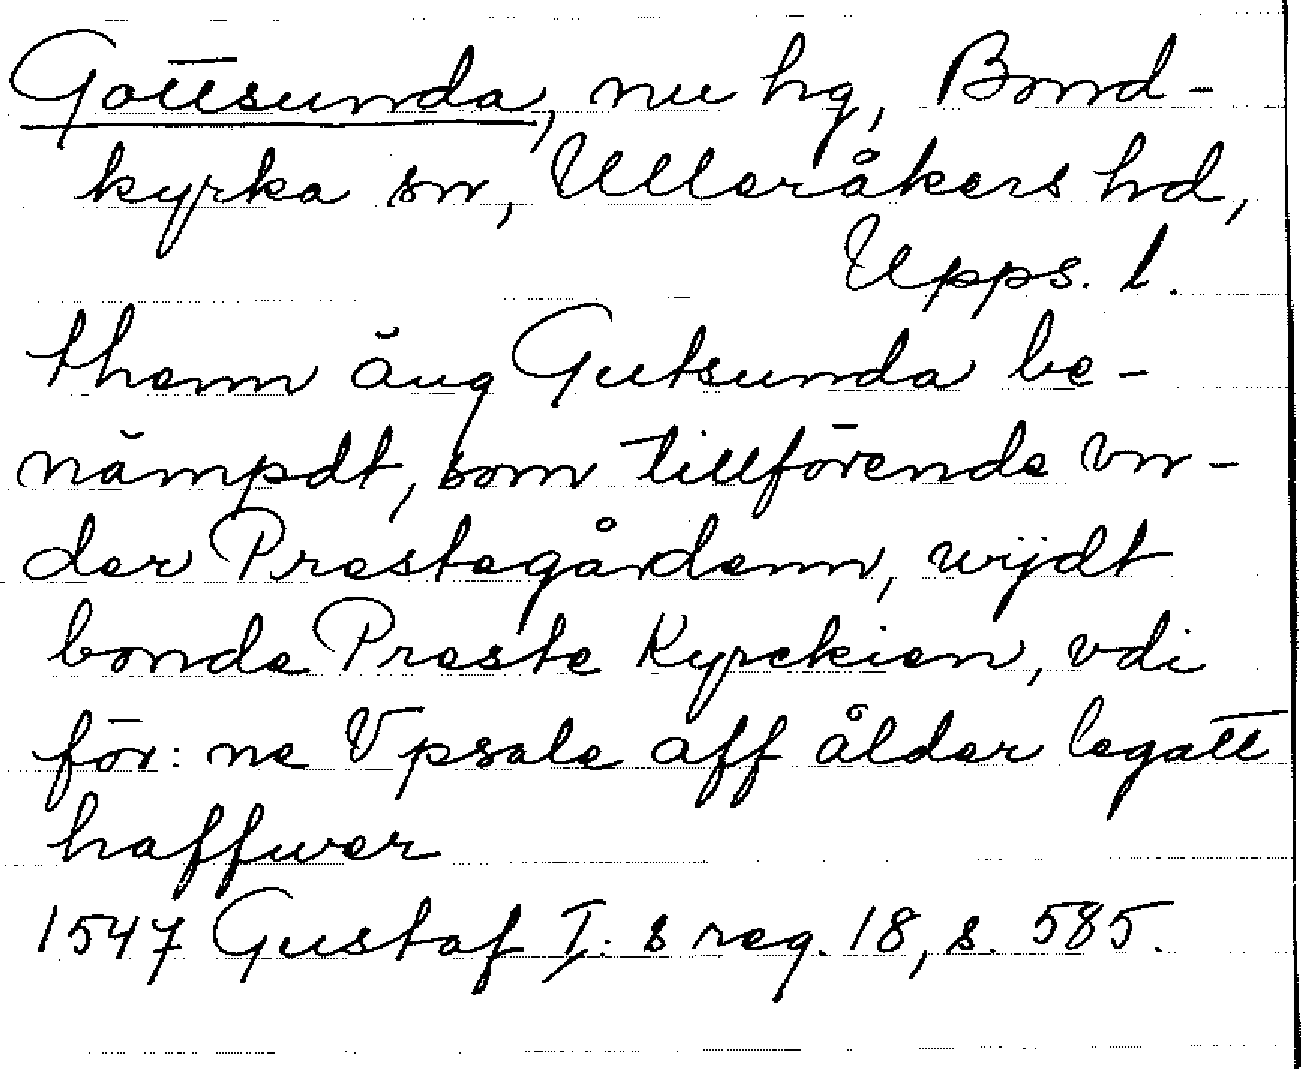 Gottsunda, nu hg, Bond-
kyrka sn, Ulleråkers hd,
Upps. l.
thenn äng Gutsunda be-
nämpdt, som tillförende vn-
der Prestegårdenn, wijdt
bonde Preste Kyrckien, vdi
för: ne Vpsale aff ålder legatt
haffwer
1547 Gustaf I: s reg. 18, s. 585.